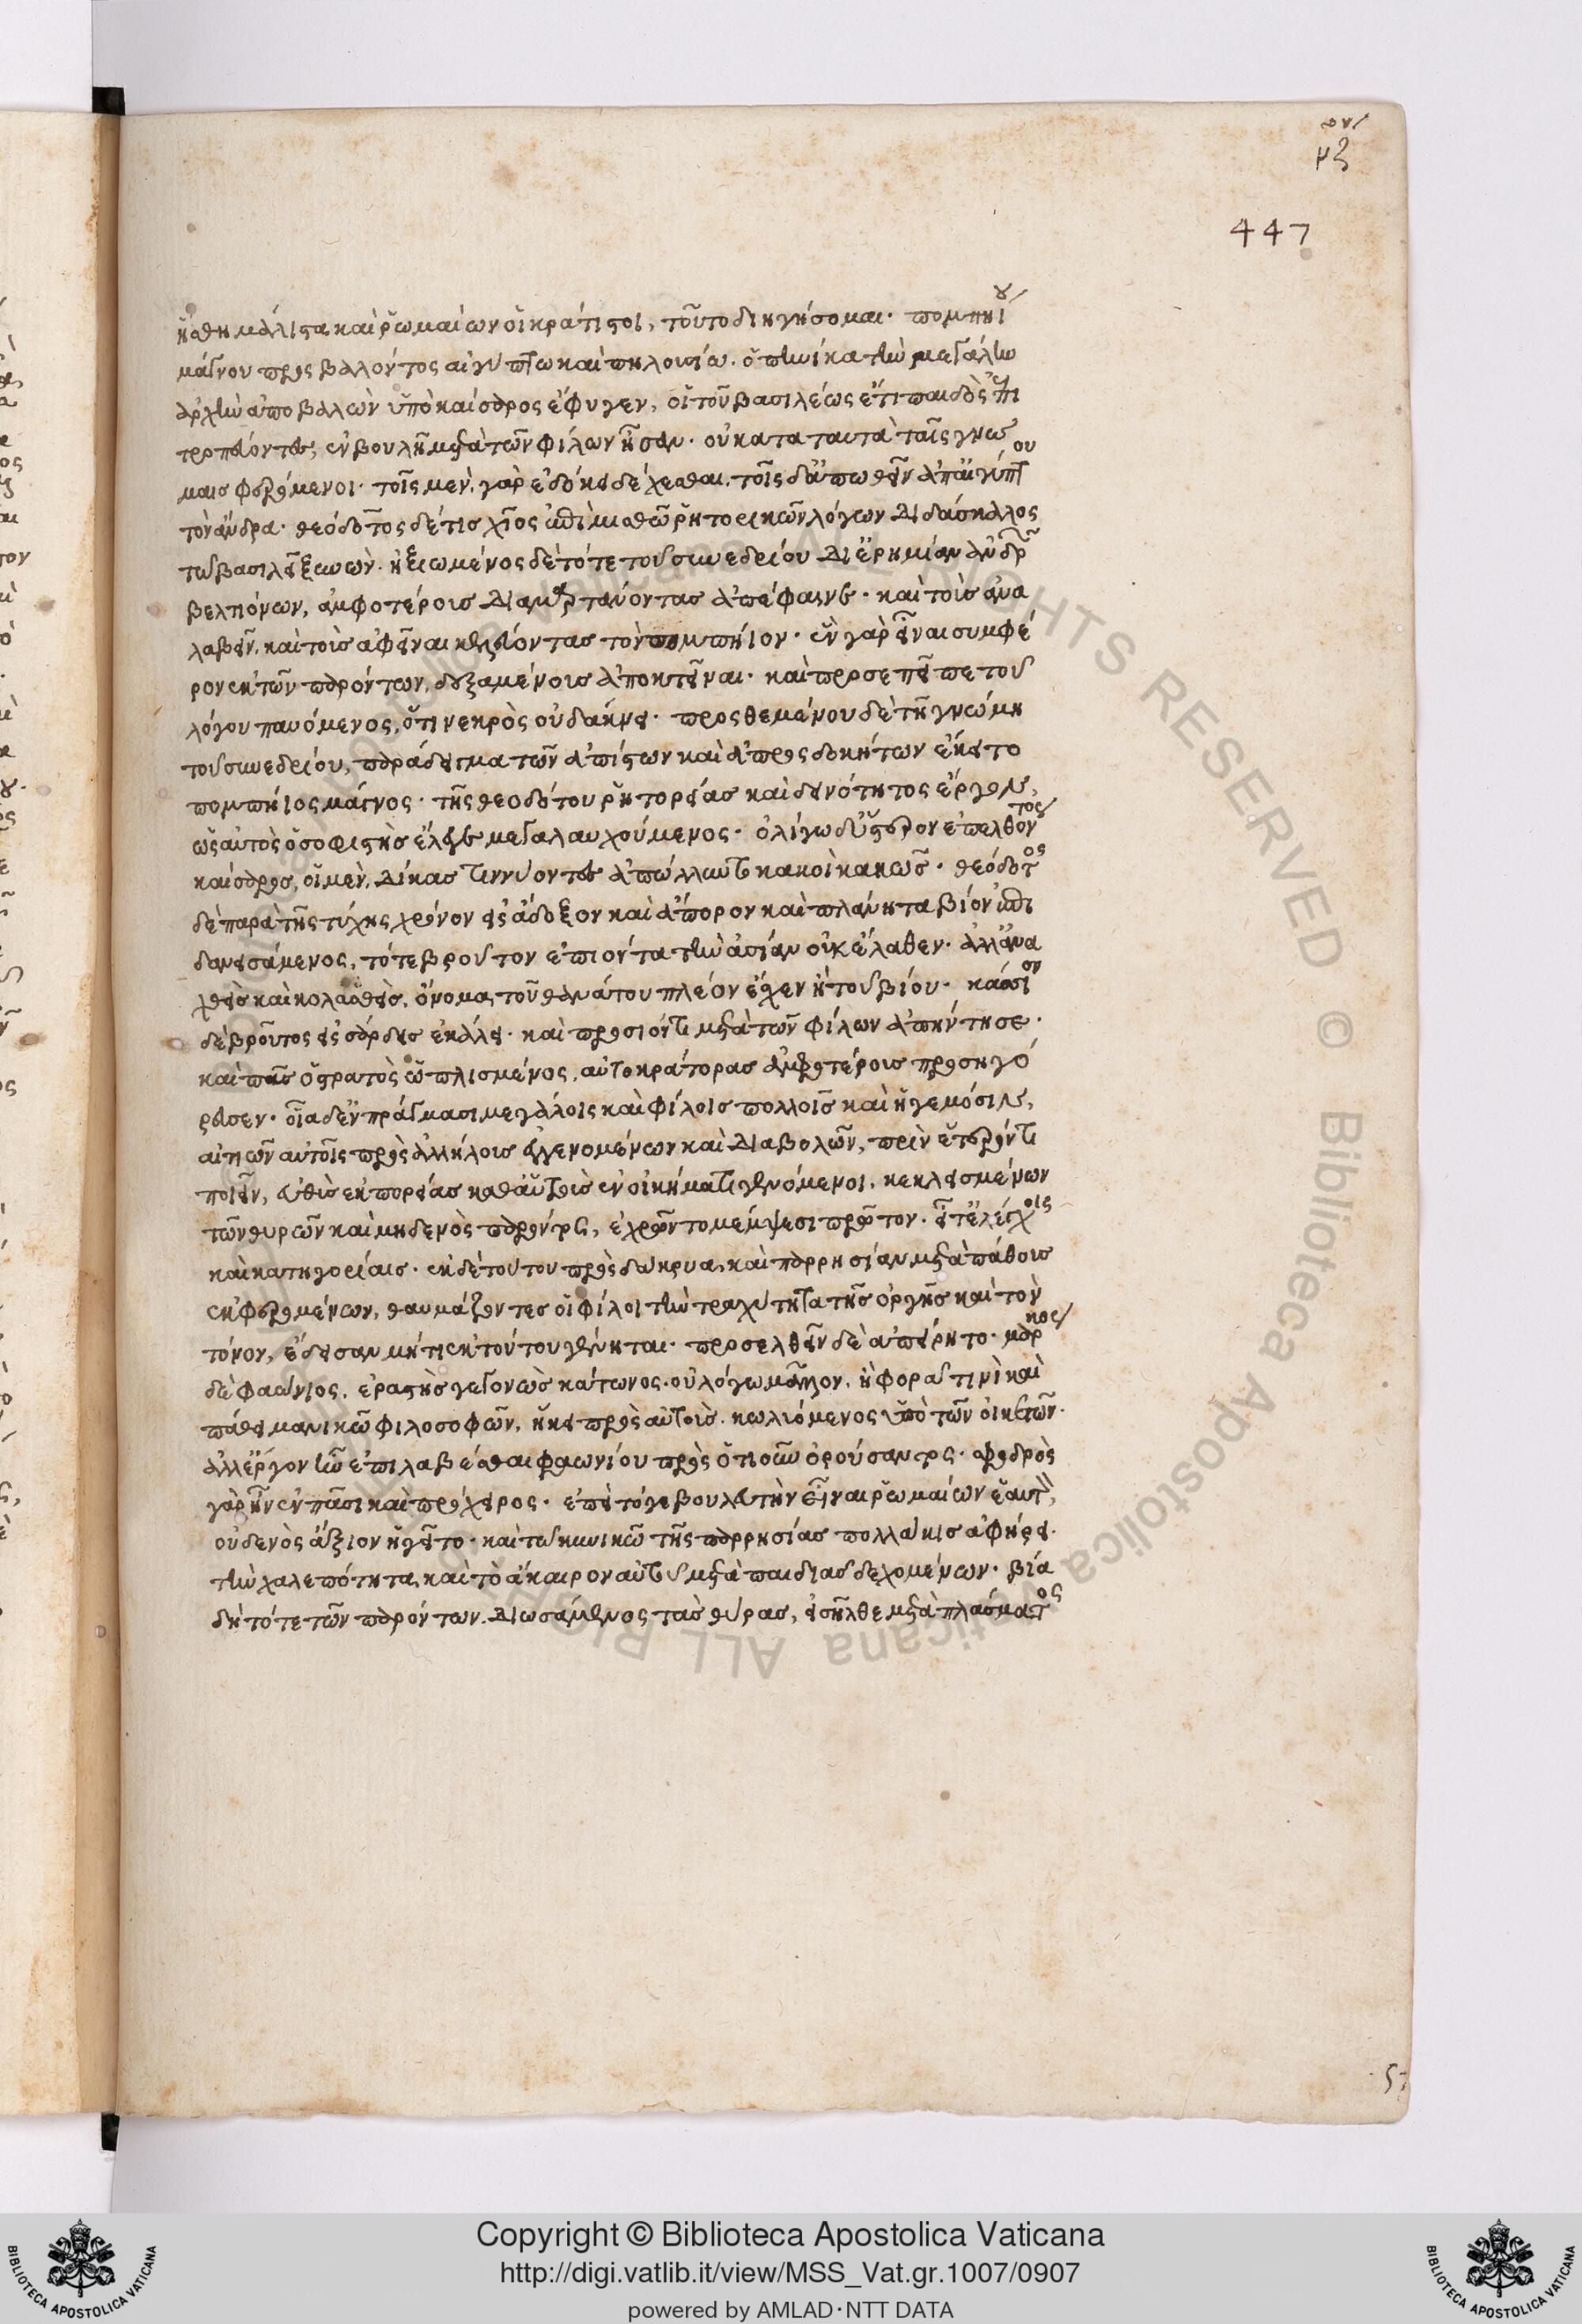 ονι
μζ
447
ἥσθη μάλιστα καὶ ῥωμαίων οἱ κράτιστοι, τοῦτο διηγήσομαι· πομπηί ου
μάγνου προσβαλόντος αἰγύπτω καὶ πηλουσίω. ὁπηνίκα τὴν μεγάλην
ἀρχὴν ἀποβαλὼν ὑπὸ καίσαρος ἔφυγεν, οἱ τοῦ βασιλέως ἔτι παιδὸς ἐπι
τροπεύοντες, ἐν βουλῆ μετὰ τῶν φίλων ἦσαν· οὐ κατα ταυτὰ ταῖς γνώ
μαις φερόμενοι· τοῖς μὲν, γὰρ ἐδόκει δέχεσθαι, τοῖς δ' ἀπωθεῖν ἀπ' αἰγύπτ ου
τὸν ἄνδρα· θεόδοτος δέ τις χῖος ἐπὶ μισθῶ ῥητορικῶν λόγων διδάσκαλος
τῶ βασιλεῖ ξυνὼν. ἠξιωμένος δὲ τότε τοῦ συνεδρίου δι' ἐρημίαν ἀνδρῶν
βελτιόνων, ἀμφοτέρους διαμαρτάνοντας ἀπέφαινε· καὶ τοὺς ἀνα
λαβεῖν, καὶ τοὺς ἀφεῖναι κελεύοντας τὸν πομπήιον· ἓν γὰρ εἶναι συμφέ
ρον ἐκ τῶν παρόντων, δεξαμένους ἀποκτεῖναι· καὶ προσεπεῖπε τοῦ
λόγου παυόμενος, ὅτι νεκρὸς οὐ δάκνει· προσθεμένου δὲ τῆ γνώμη
τοῦ συνεδρίου, παράδειγμα τῶν ἀπίστων καὶ ἀπροσδοκήτων ἔκειτο
πομπήιος μάγνος· τῆς θεοδότου ῥητορείας καὶ δεινότητος ἔργον,
ὡς αὐτὸς ὁ σοφιστὴς ἔλεγε μεγαλαυχούμενος· ὀλίγω δ' ὕστερον ἐπελθόν τος
καίσαρος, οἱ μὲν, δίκας τιννύοντες ἀπώλλυντο κακοὶ κακῶς· θεόδοτ ος
δὲ παρὰ τῆς τύχης χρόνον εἰς ἄδοξον καὶ ἄπορον καὶ πλάνητα βίον ἐπι
δανεισάμενος, τότε βροῦτον ἐπιόντα τὴν ἀσίαν οὐκ ἔλαθεν· ἀλλ' ἀνα
χθεὶς καὶ κολασθεὶς, ὄνομα τοῦ θανάτου πλέον ἔσχεν ἢ τοῦ βίου· κάσσι ον
δὲ βροῦτος εἰς σάρδεις ἐκάλει· καὶ προσιόντι μετὰ τῶν φίλων ἀπήντησε·
καὶ πᾶς ὁ στρατὸς ὡπλισμένος, αὐτοκράτορας ἀμφοτέρους προσηγό
ρευσεν· οἷα δ' ἐν πράγμασι μεγάλοις καὶ φίλοις πολλοῖς καὶ ἡγεμόσιν,
αἰτιῶν αὐτοῖς πρὸς ἀλλήλους ἐγγενομένων καὶ διαβολῶν, πρὶν ἕτερόν τι
ποιεῖν, εὐθὺς ἐκ πορείας καθ' αὑτοὺς ἐν οἰκήματι γενόμενοι, κεκλεισμένων
τῶν θυρῶν καὶ μηδενὸς παρόντος, ἐχρῶντο μέμψεσι πρῶτον· εἶτ' ἐλέγχ οις
καὶ κατηγορίαις· ἐκ δὲ τούτου πρὸς δάκρυα, καὶ παρρησίαν μετὰ πάθους
ἐκφερομένων, θαυμάζοντες οἱ φίλοι τὴν τραχύτητα τῆς ὀργῆς καὶ τὸν
τόνον, ἔδεισαν μή τι ἐκ τούτου γένηται· προσελθεῖν δὲ ἀπείρητο· μάρ κος
δὲ φαώνιος, ἐραστὴς γεγονὼς κάτωνος. οὐ λόγω μᾶλλον, ἢ φορᾶ τινὶ καὶ
πάθει μανικῶ φιλοσοφῶν, ἧκε πρὸς αὐτοὺς. κωλυόμενος ὑπὸ τῶν οἰκετῶν·
ἀλλ' ἔργον ἦν ἐπιλαβέσθαι φαωνίου πρὸς ὁτιοῦν ὀρούσαντος· σφοδρὸς
γὰρ ἦν ἐν πᾶσι καὶ πρόχειρος· ἐπεὶ τό γε βουλευτὴν εἶναι ῥωμαίων ἑαυτὸν,
οὐδενὸς ἄξιον ἡγεῖτο· καὶ τῶ κυνικῶ τῆς παρρησίας πολλάκις ἀφήρει.
τὴν χαλεπότητα, καὶ τὸ ἄκαιρον αὐτοῦ μετὰ παιδιᾶς δεχομένων· βία
δὴ τότε τῶν παρόντων. διωσάμενος τὰς θύρας, εἰσῆλθε μετὰ πλάσματ ος
Copyright © Biblioteca Apostolica Vaticana
http://digi.vatlib.it/view/MSS_Vat.gr.1007/0907
powered by AMLAD·NTT DATA